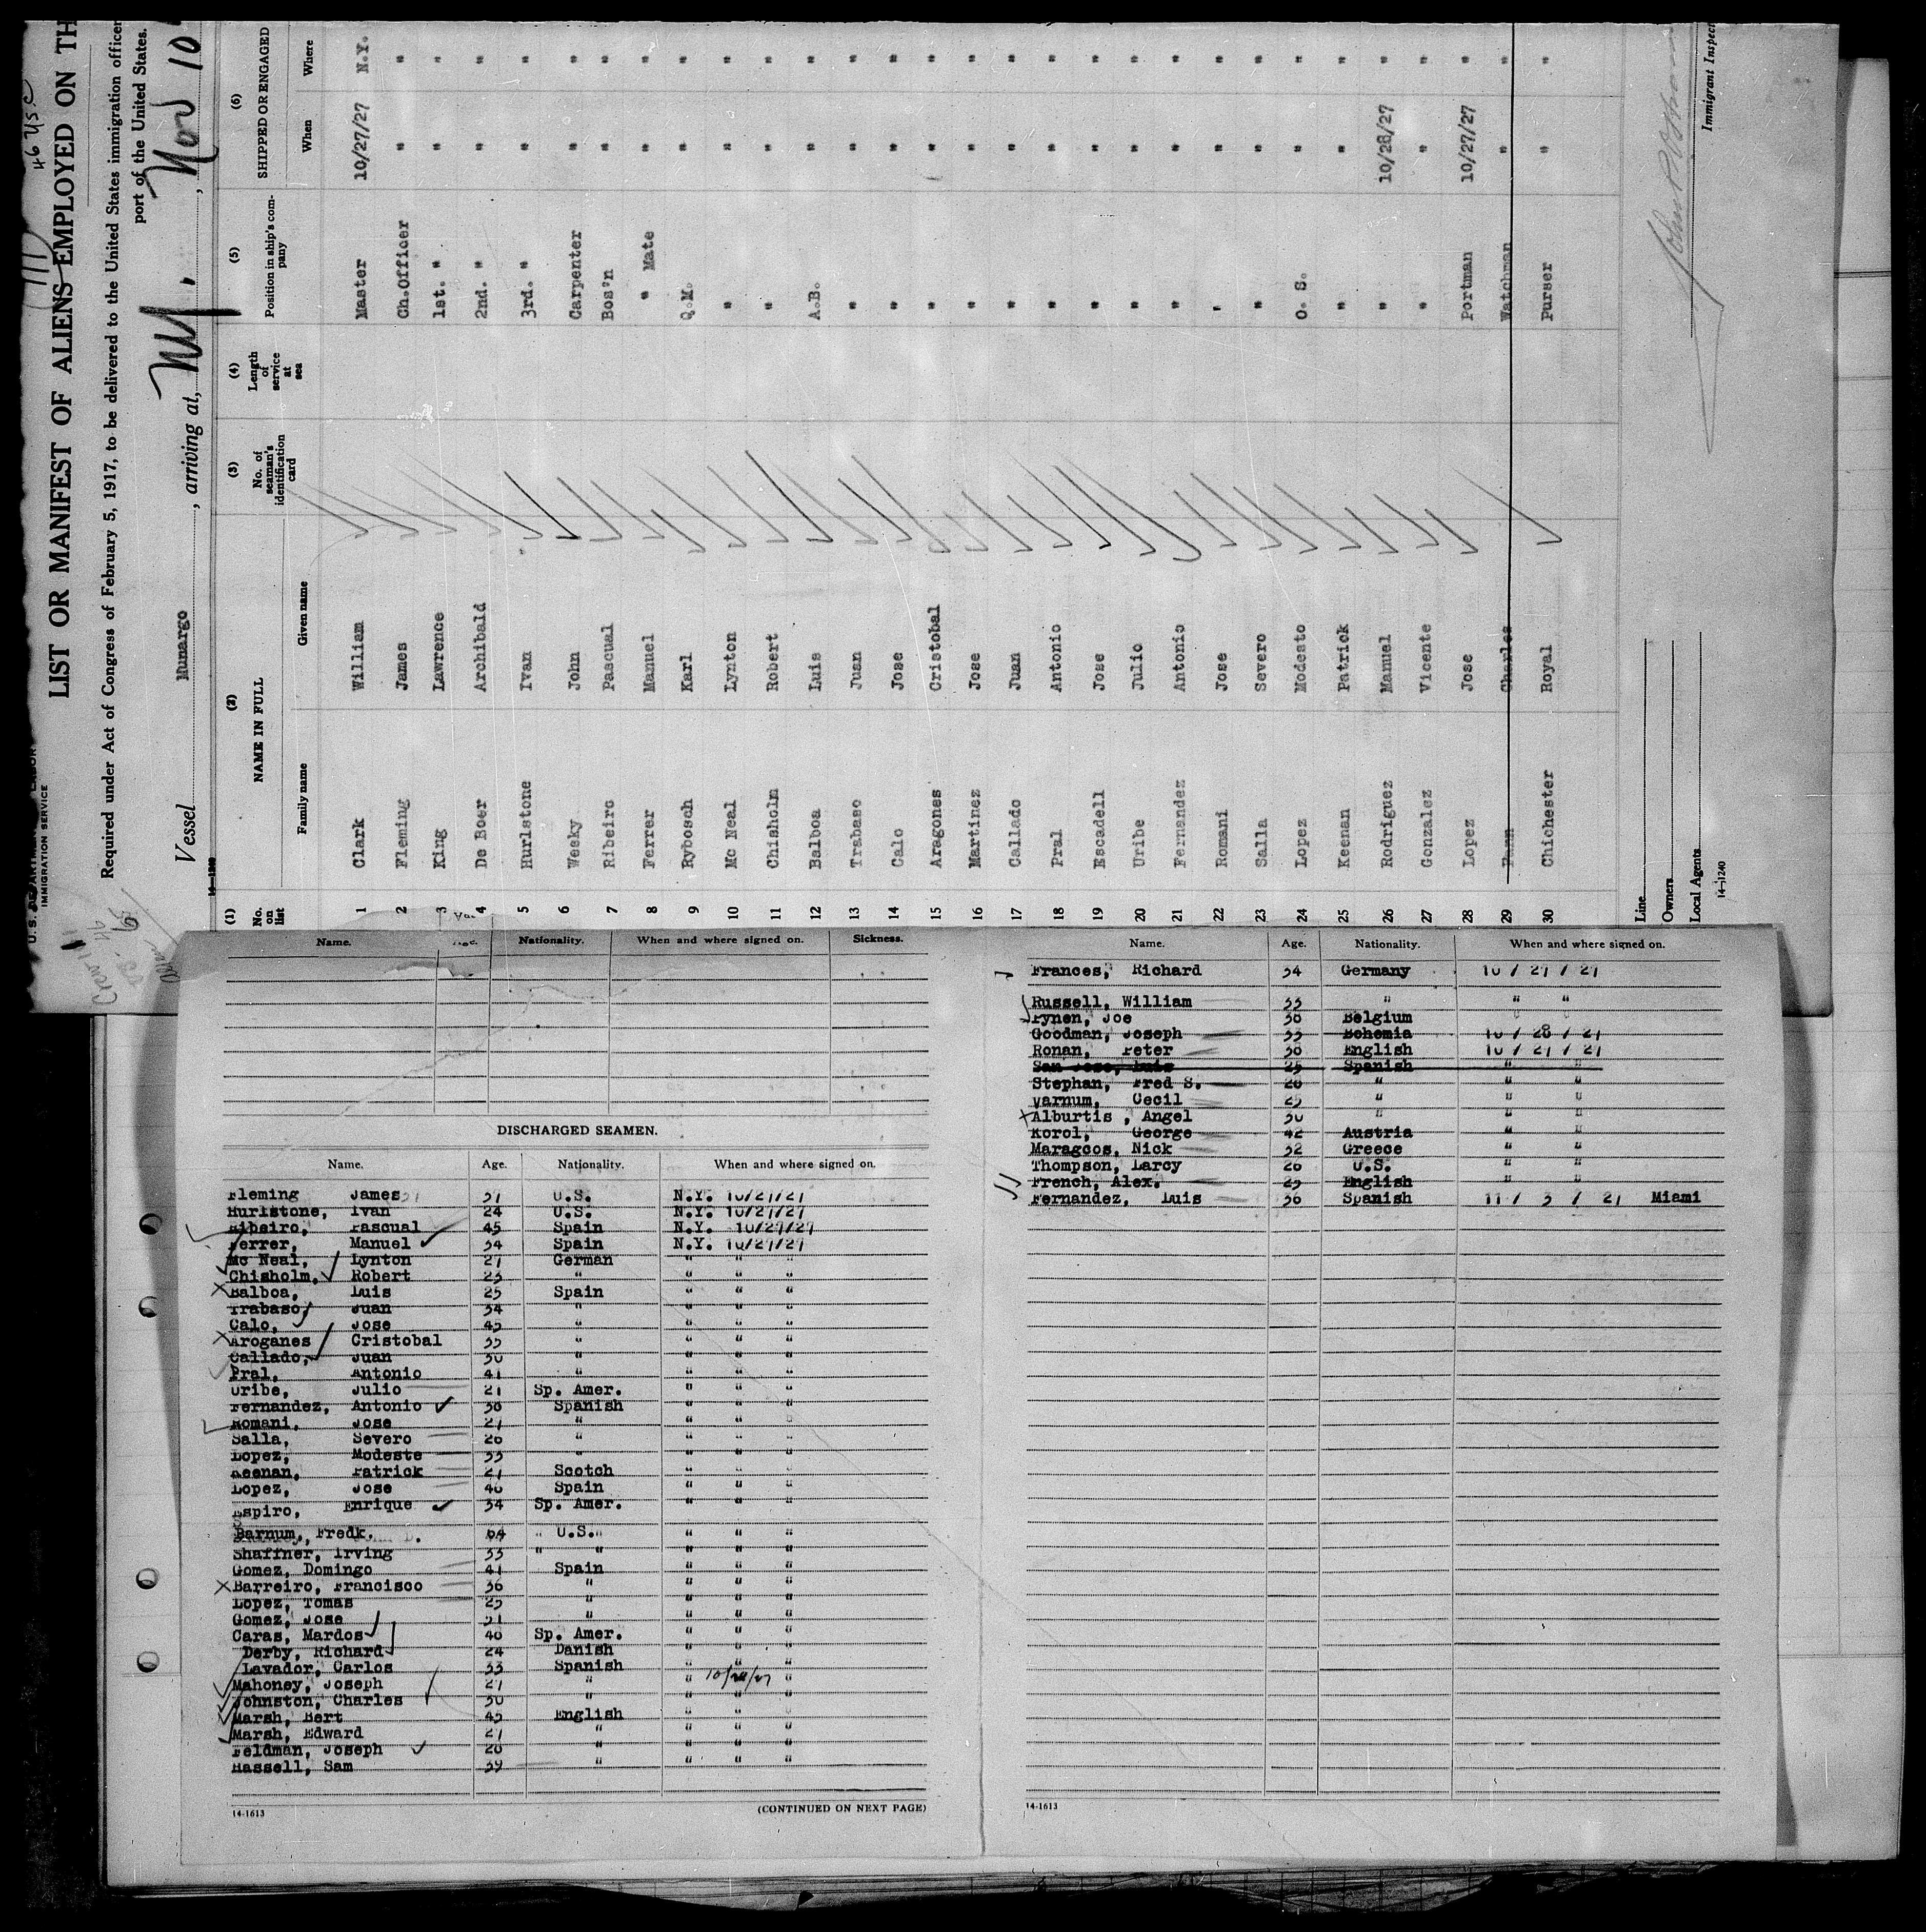 U.S. DEPARTMENT OF LABOR
IMMIGRATION SERVICE
LIST OR MANIFEST OF ALIENS EMPLOYED ON TH
Required under Act of Congress of February 5, 1917, to be delivered to the United States immigration officer
port of the United States.
Vessel Munargo, arriving at, N.Y., Nov 10
14-1240
(1) (2) (3) (4) (5) (6)
No. on list NAME IN FULL No. of seaman's identification card Length of service at sea Position in ship's company SHIPPED OR ENGAGED
Family name Given name When Where
1 Clark William Master 10/27/27 N.Y.
2 Fleming James Ch.Officer " "
3 King Lawrence 1st. " " "
4 De Boer Archibald 2nd. " " "
5 Hurlstone Ivan 3rd. " " "
6 Wesky John Carpenter " "
7 Ribeiro Pascual Bos'n " "
8 Ferrer Manuel " Mate " "
9 Rybosch Karl Q.M. " "
10 Mc Neal Lynton " " "
11 Chisholm Robert " " "
12 Balboa Luis A.B. " "
13 Trabaso Juan " " "
14 Calo Jose " " "
15 Aragones Cristobal " " "
16 Martinez Jose " " "
17 Callado Juan " " "
18 Pral Antonio " " "
19 Escadell Jose " " "
20 Uribe Julio " " "
21 Fernandez Antonio " " "
22 Romani Jose " " "
23 Salla Severo " " "
24 Lopez Modesto O. S. " "
25 Keenan Patrick " " "
26 Rodriguez Manuel " 10/28/27 "
27 Gonzalez Vicente " " "
28 Lopez Jose Portman 10/27/27 "
29 Charles Watchman " "
30 Chichester Royal Purser " "
Line
Owners
Local Agents
14-1240
Immigrant Inspec
Name. Age. Nationality. When and where signed on. Sickness.
DISCHARGED SEAMEN.
Name. Age. Nationality. When and where signed on.
Fleming James 37 U.S. N.Y. 10/27/27
Hurlstone, Ivan 24 U.S. N.Y. 10/27/27
Ribeiro, Pascual 45 Spain N.Y. 10/27/27
Ferrer, Manuel 34 Spain N.Y. 10/27/27
Mc Neal, Lynton 27 German " " "
Chisholm, Robert 23 " " " "
Balboa, Luis 25 Spain " " "
Trabaso, Juan 34 " " " "
Calo, Jose 45 " " " "
Aroganes Cristobal 35 " " " "
Callado, Juan 30 " " " "
Pral, Antonio 41 " " " "
Uribe, Julio 21 Sp. Amer. " " "
Fernandez, Antonio 38 Spanish " " "
Romani, Jose 27 " " " "
Salla, Severo 26 " " " "
Lopez, Modeste 33 " " " "
Keenan, Patrick 27 Scotch " " "
Lopez, Jose 48 Spain " " "
Espiro, Enrique 34 Sp. Amer. " " "
Barnum, Fredk. 64 " U.S." " " "
Shaffner, Irving 33 " " " " "
Gomez, Domingo 41 Spain " " "
Barreiro, Francisco 36 " " " "
Lopez, Tomas 25 " " "
Gomez, Jose 31 " " " "
Caras, Mardos 48 Sp. Amer. " " "
Derby, Richard 24 Danish " " "
Lavador, Carlos 33 Spanish " " "
Mahoney, Joseph 27 " " 10/28/27 "
Johnston, Charles 30 " " " "
Marsh, Bert 45 English " " "
Marsh, Edward 27 " " " "
Feldman, Joseph 28 " " " "
Hassell, Sam 39 " " " "
14-1613 (CONTINUED ON NEXT PAGE)
Name. Age. Nationality. When and where signed on.
Frances, Richard 34 Germany 10 / 27 / 27
Russell, William 33 " " "
Pynen, Joe 38 Belgium " "
Goodman, Joseph 33 Bohemia 10 / 28 / 27
Ronan, Peter 38 English 10 / 27 / 27
San Jose, Luis 25 Spanish " "
Stephan, Fred S. 28 " " "
Varnum, Cecil 25 " " "
Alburtis, Angel 30 " " "
Korol, George 42 Austria " "
Maragcos, Nick 32 Greece " "
Thompson, Larcy 26 U.S. " "
French, Alex. 25 English " "
Fernandez, Luis 36 Spanish 11 / 3 / 27 Miami
14-1613